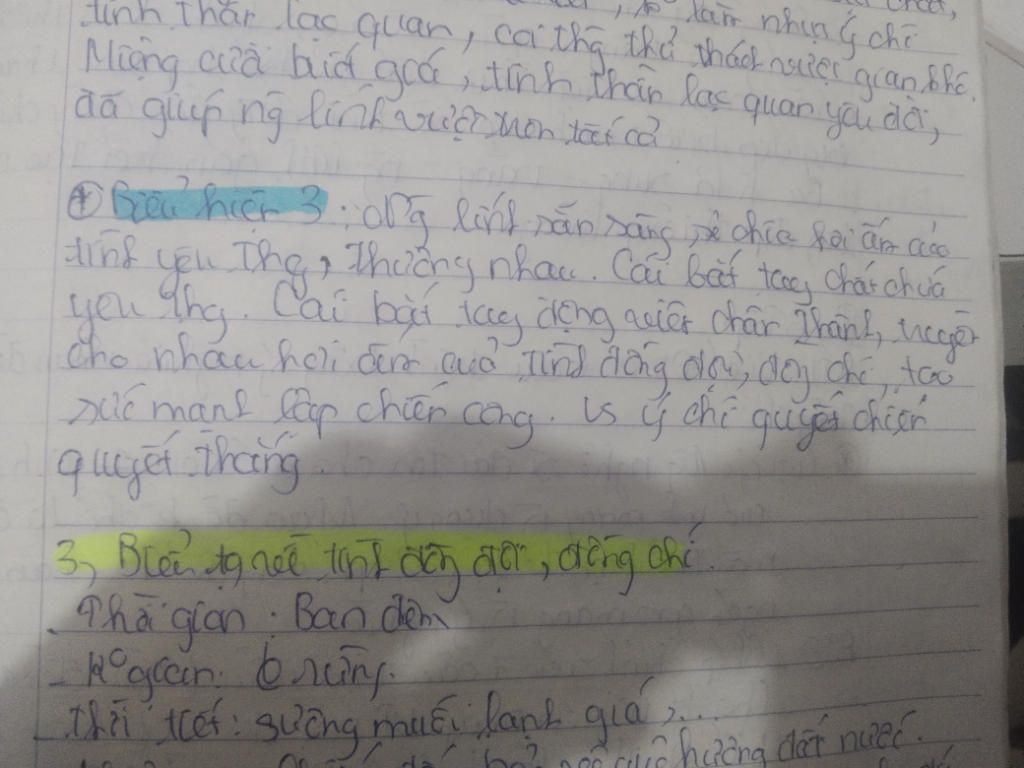 tinh thần lạc quan, coi thg thử thách vượt gian khó.
Miệng cười buốt giá, tinh thần lạc quan yêu đời,
đã giúp ng lính vượt lên tất cả
+ Biểu hiện 3: Ng lính sẵn sàng sẻ chia hơi ấm của
tình yêu thg, thường nhau. Cái bắt tay chất chứa
yêu thg. Cái bắt tay động viên chân thành, truyền
cho nhau hơi ấm của tình đồng đội, đồng chí, tạo
sức mạnh lập chiến công. Vs ý chí quyết chiến
quyết thắng.
3, Biểu tg về tình đồng đội, đồng chí.
Thời gian: Ban đêm
- K° gian: ở rừng.
Thời tiết: sương muối lạnh giá,...
quê hương đất nước.